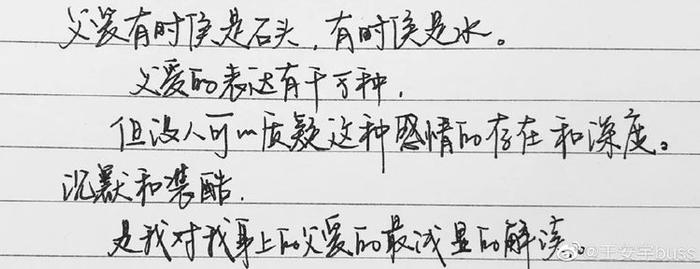 父爱有时候是石头,有时候是水。
父爱的表达有千万种,
但没人可以质疑这种感情的存在和深度。
沉默和装酷,
是我对我身上的父爱的最浅显的解读。
@王安宇buss